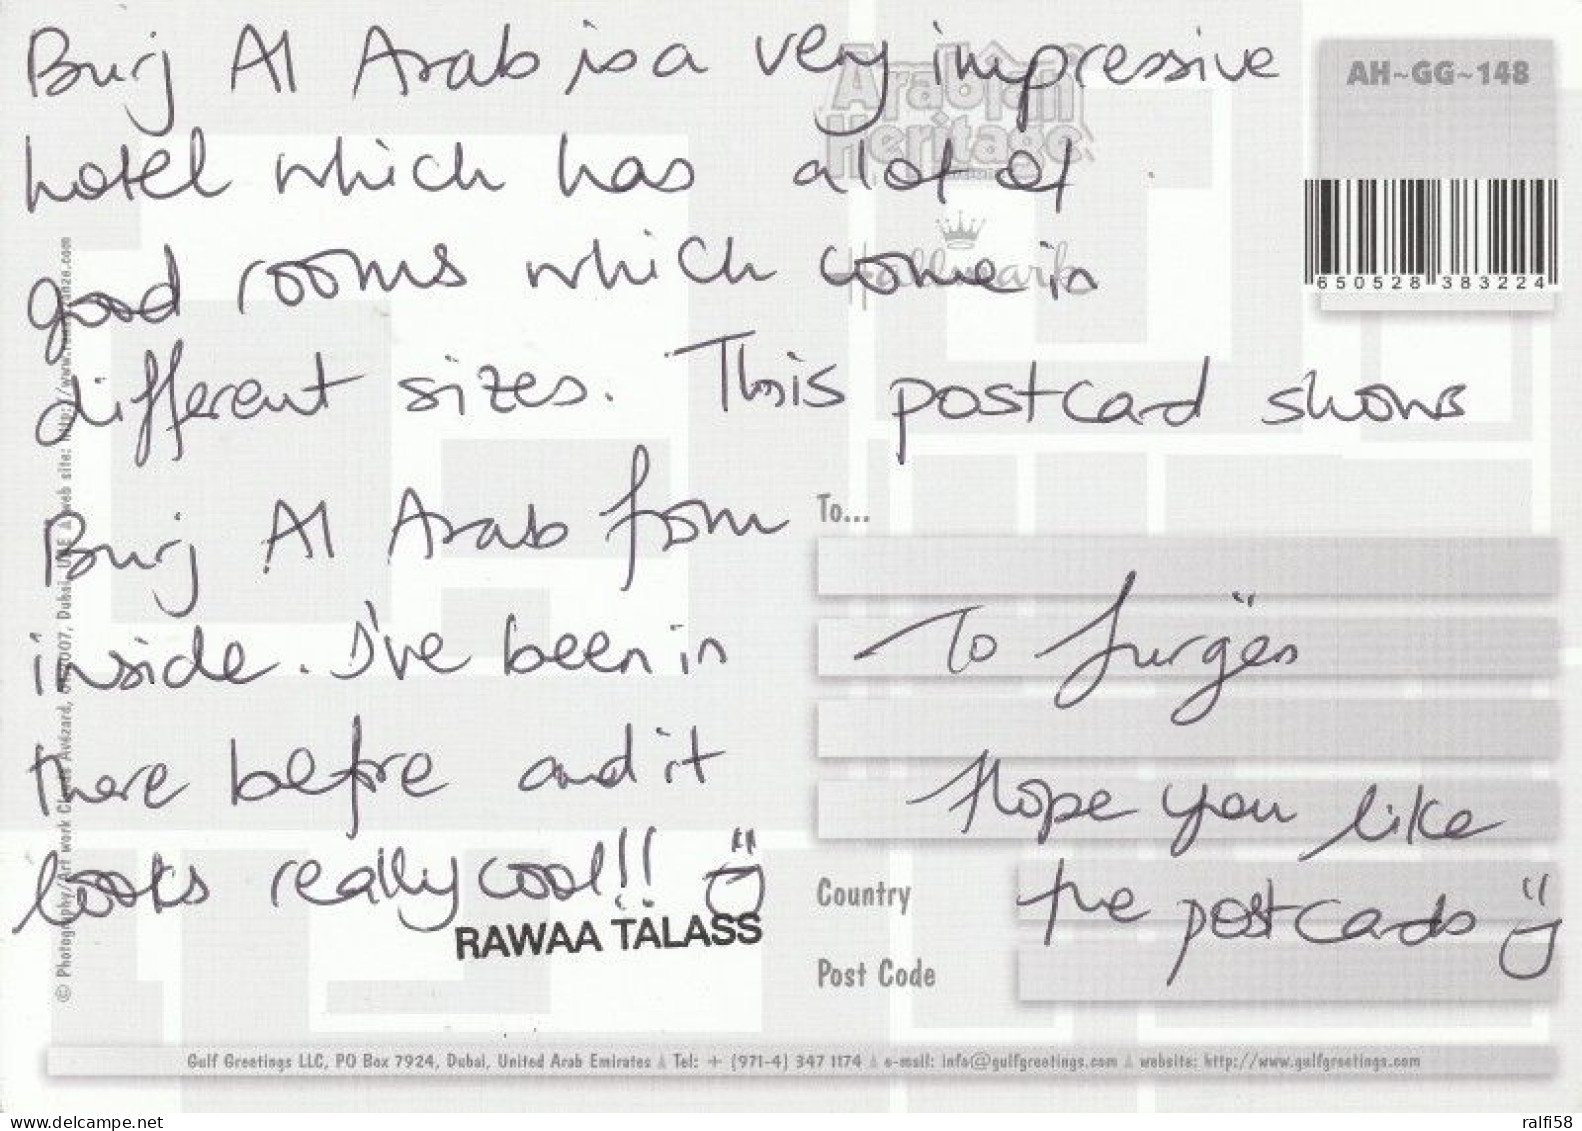 Burj Al Arab is a very impressive
hotel which has a lot of
good rooms which come in
different sizes. This postcard shows
Burj Al Arab from
inside. I've been in
there before and it
looks really cool!!
RAWAA TALASS
Arabian
Heritage
Hallmark
AH~GG~148
650528 383224
To...
To Jurgën
Hope you like
the postcards
Country
Post Code
Gulf Greetings LLC, PO Box 7924, Dubai, United Arab Emirates Tel: + (971-4) 347 1174 e-mail: info@gulfgreetings.com website: http://www.gulfgreetings.com
delcampe.net
ralfi58